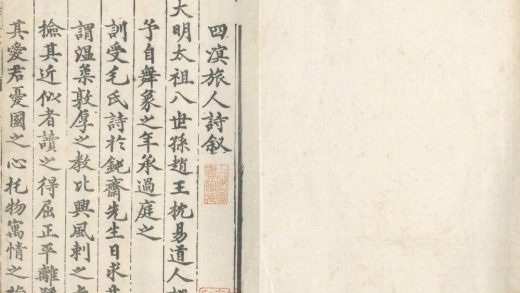 四溟旅人詩叙
大明太祖八世孫趙王枕易道人
予自舞象之年承過庭之
訓受毛氏詩於鈍齋先生日求
謂溫葇敦厚之教比興風刺之
撿其近似者讀之得屈正平離
其愛君憂國之心托物寓情之